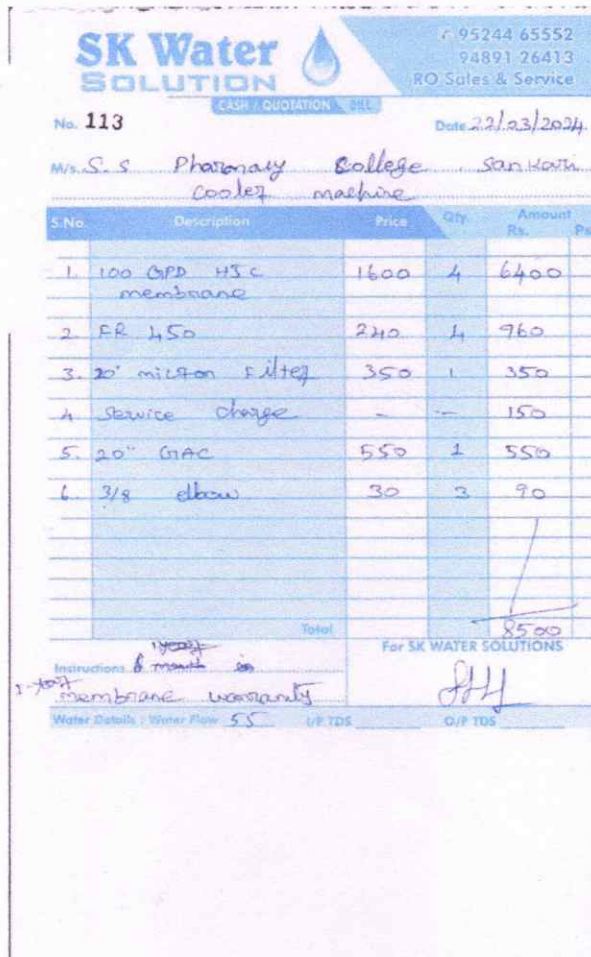 SK Water
SOLUTION
✆ 95244 65552
94891 26413
RO Sales & Service
CASH / QUOTATION BILL
No. 113 Date 22/03/2024
M/s. S.S Pharmacy College Sankari
cooler machine
S.No. Description Price Qty. Amount
Rs. Ps.
1. 100 GPD HJC 1600 4 6400
membrane
2 FR 450 240 4 960
3. 20" micron Filter 350 1 350
4 Service charge - - 150
5. 20" GAC 550 1 550
6 3/8 elbow 30 3 90
Total 8500
For SK WATER SOLUTIONS
Instructions
1-year
membrane warranty
Water Details : Water Flow 55 I/P TDS O/P TDS